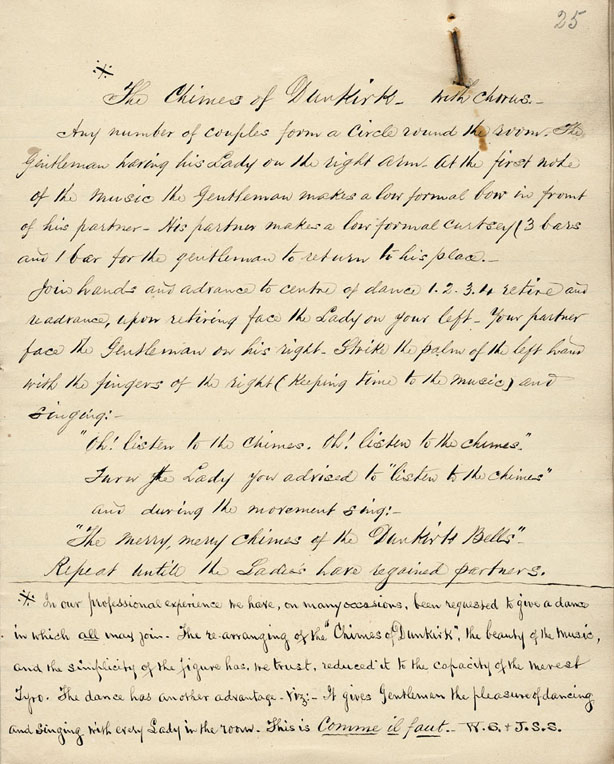 25
※ The Chimes of Dunkirk – with Chorus. –
Any number of couples form a Circle round the room. The
Gentleman having his Lady on the right arm – At the first note
of the music the Gentleman makes a low formal bow in front
of his partner – His partner makes a low formal curtsey (3 bars
and 1 bar for the gentleman to return to his place. –
Join hands and advance to centre of dance 1. 2. 3. 4 retire and
readvance, upon retiring face the Lady on your left – Your partner
face the Gentleman on his right – Strike the palm of the left hand
with the fingers of the right (keeping time to the music) and
singing: –
"Oh! listen to the chimes. Oh! listen to the chimes."
Turn the Lady you advised to "listen to the chimes"
and during the movement sing: –
"The merry, merry chimes of the Dunkirk Bells" –
Repeat untill the Ladies have regained partners.
※ In our professional experience we have, on many occasions, been requested to give a dance
in which all may join. The re-arranging of the "Chimes of Dunkirk", the beauty of the music,
and the simplicity of the figure has, we trust, reduced it to the capacity of the merest
Tyro. The dance has another advantage – Viz: – It gives Gentleman the pleasure of dancing
and singing with every Lady in the room. This is Comme il faut. – W. S. + J. S. S.